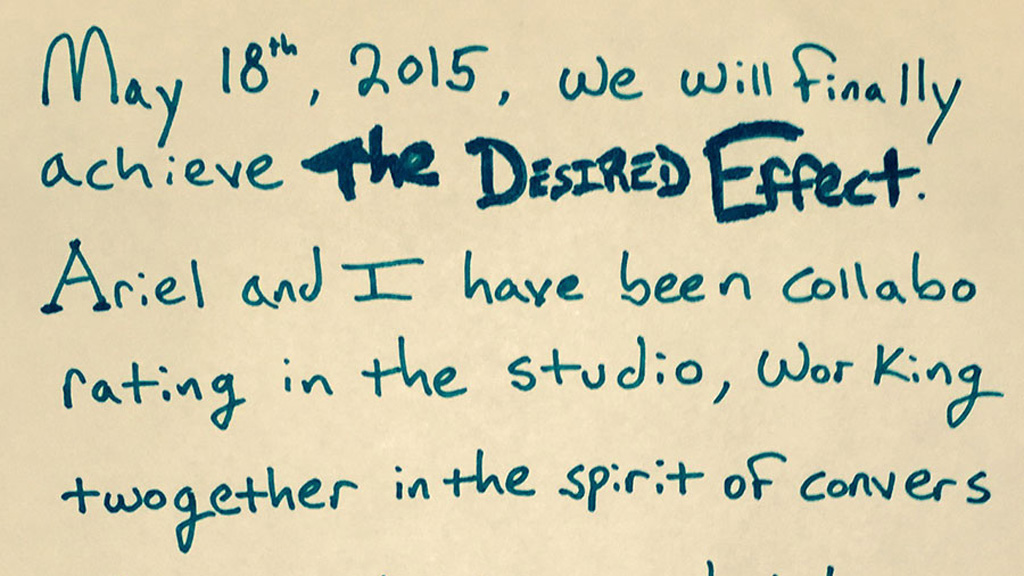 May 18th, 2015, we will finally
achieve The DESIRED Effect.
Ariel and I have been collabo
rating in the studio, Working
twogether in the spirit of convers